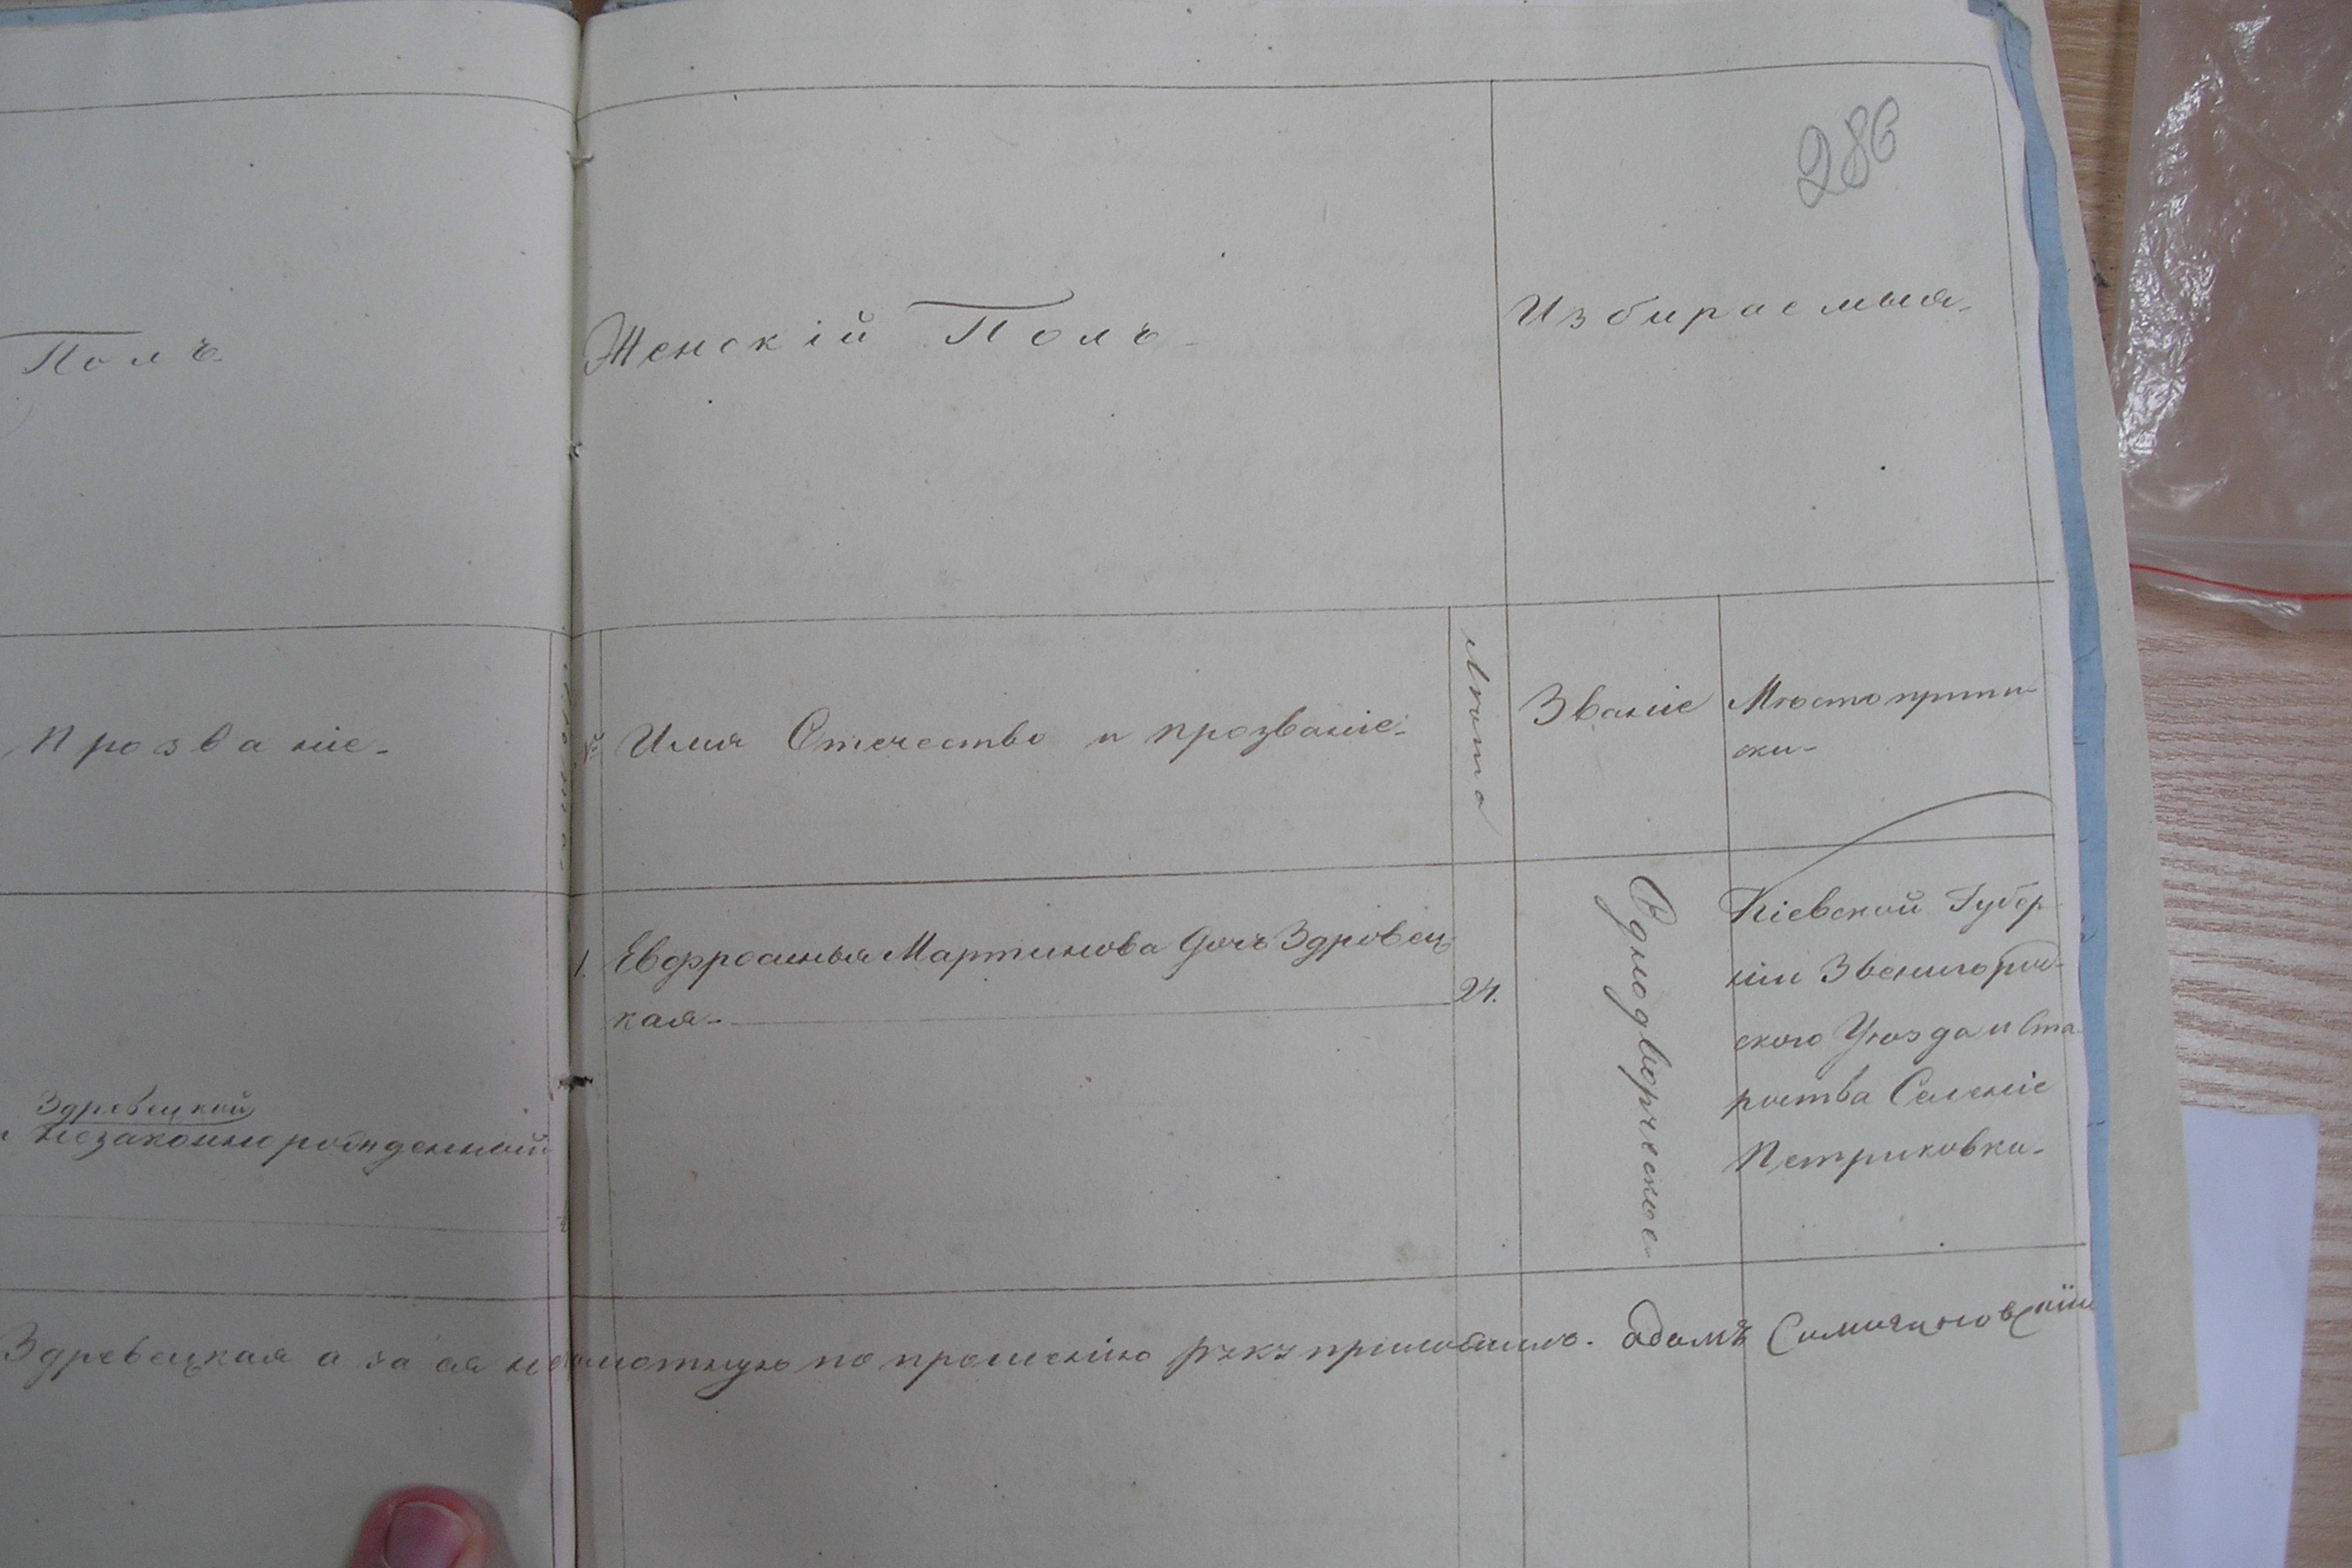 286
Полъ
Женскій Полъ
Избираемыя
Прозваніе
№
Имя Отечество и прозваніе
Лѣта
Званіе
Мѣсто припи
ски
Здревецкой
незаконнорожденной
1. Евфросинья Мартинова дочь Здровец
кая
24.
Однодворческое
Кіевской Губер
ніи Звенигород
ского Уѣзда и Ста
роства Селеніе
Петриковки
Здревецкая а за ея неграмотную по прошенію руку приложилъ. Адамъ